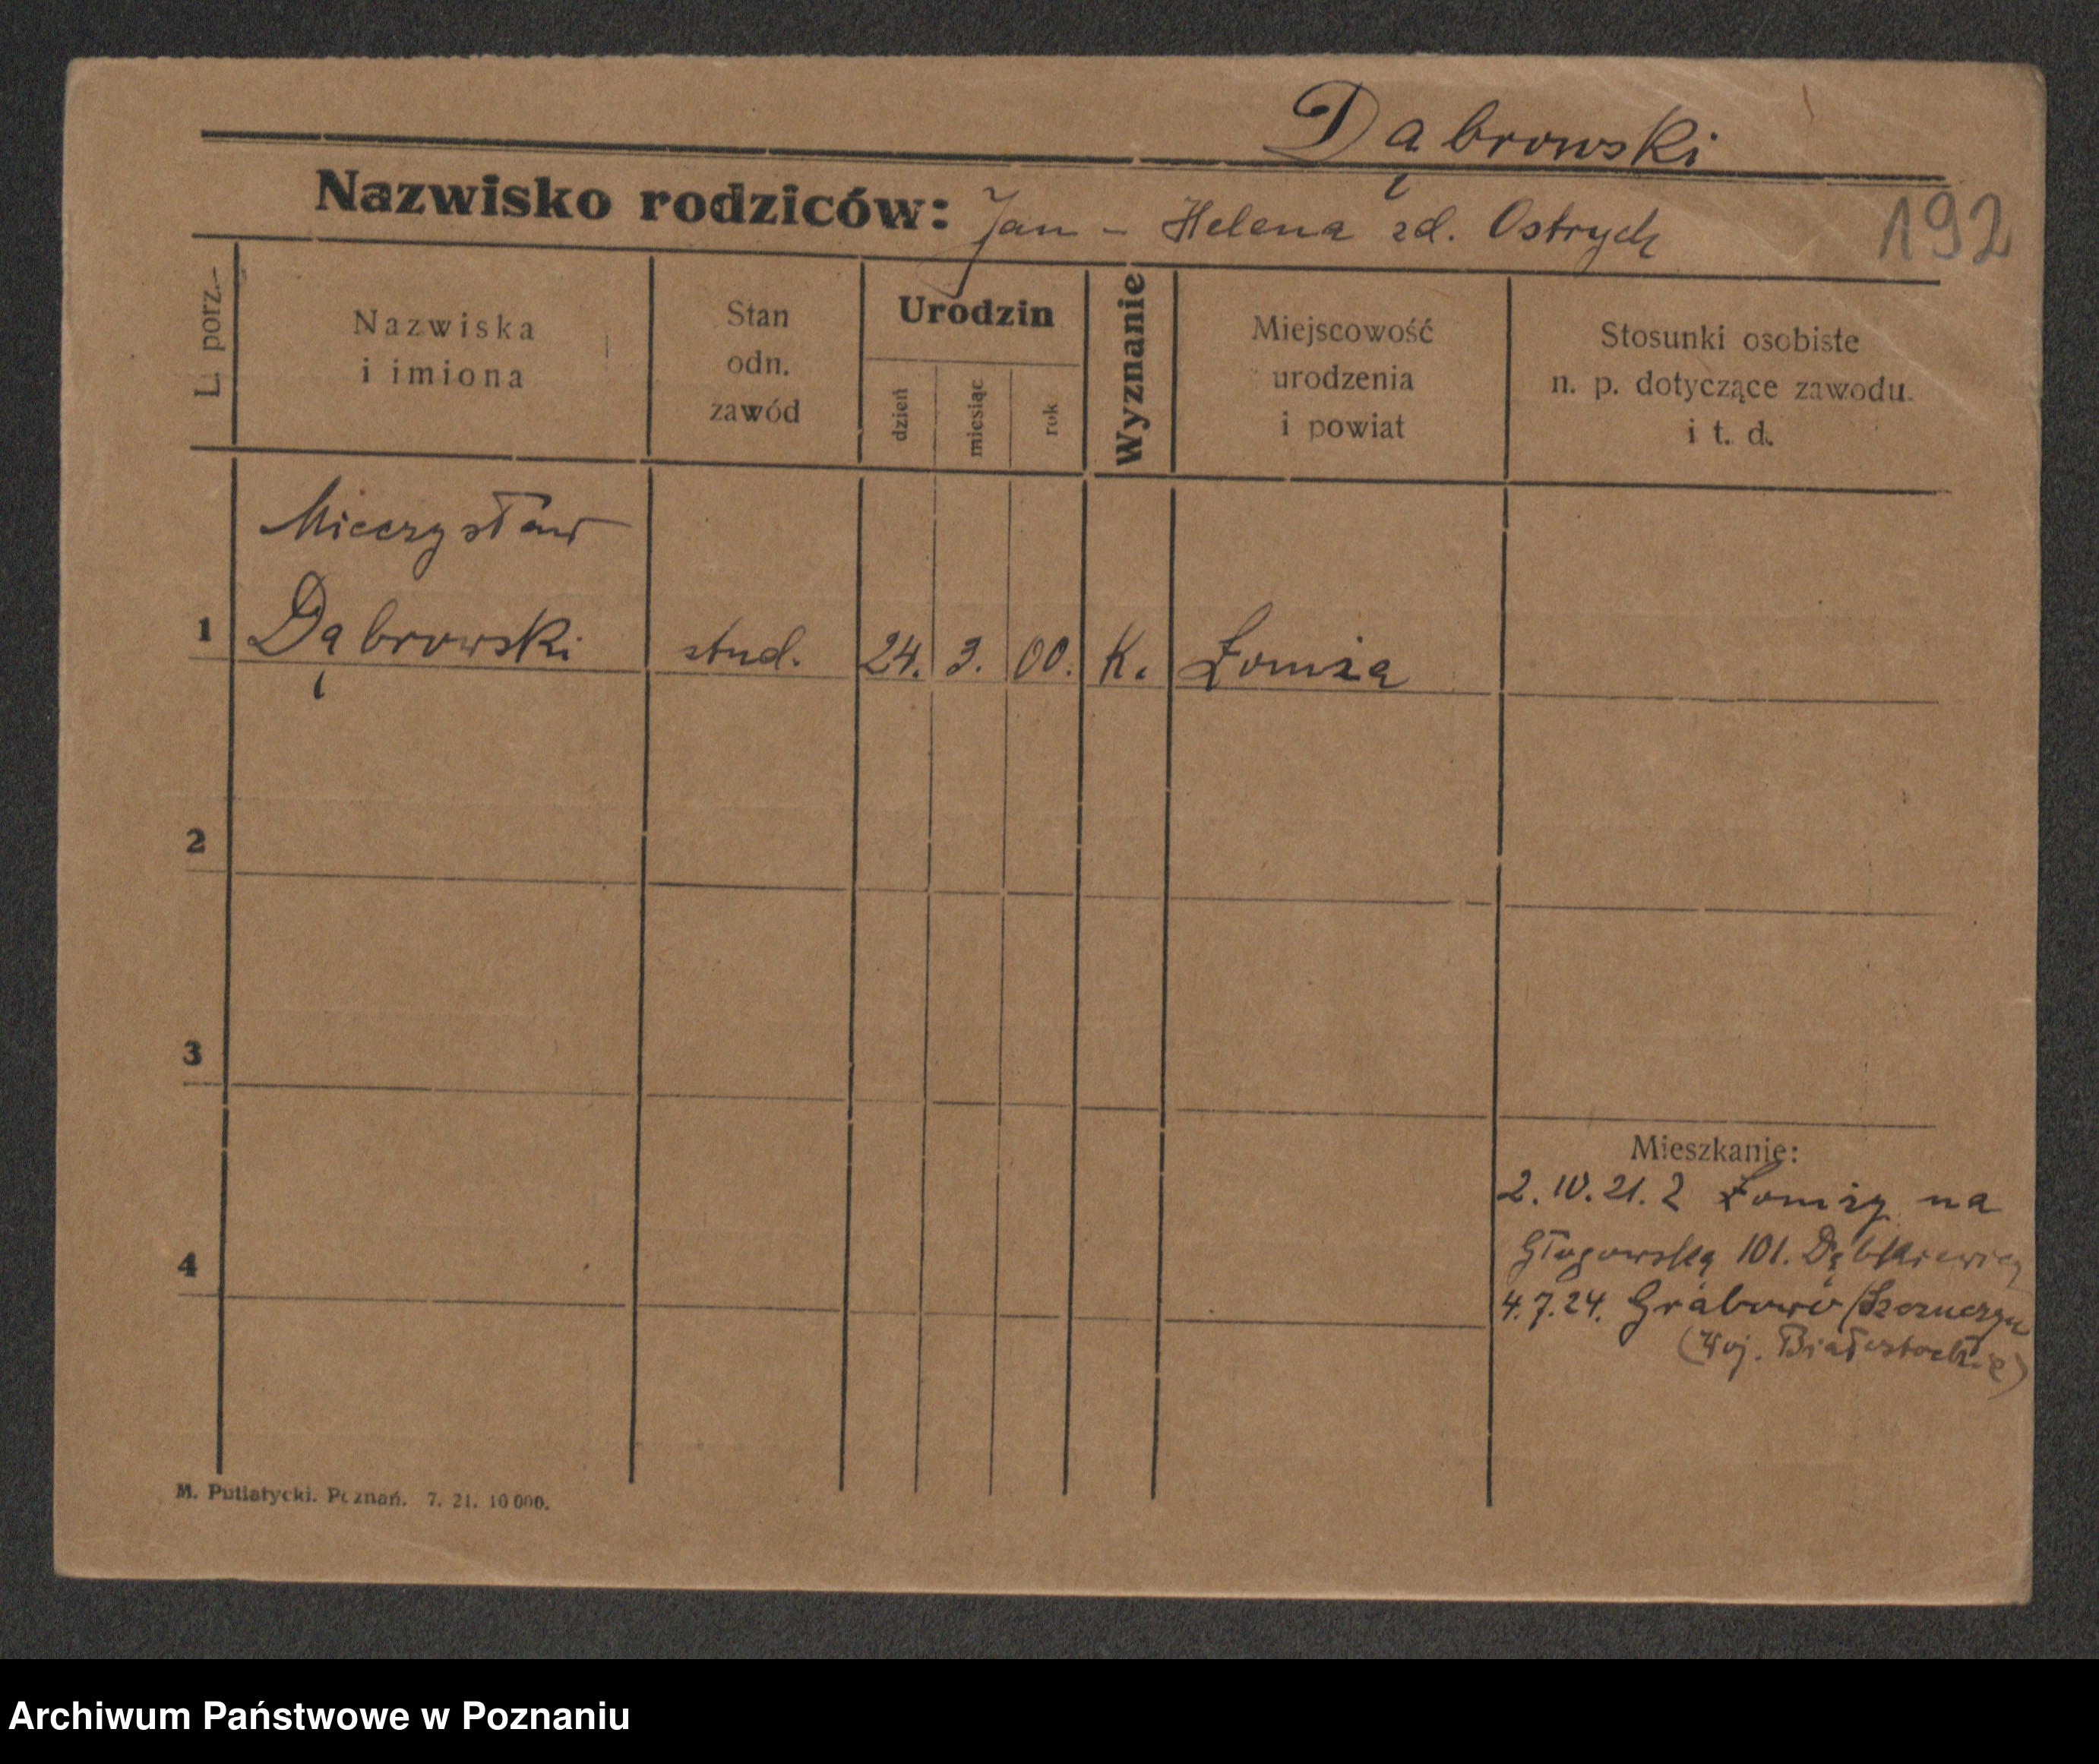 Dąbrowski
Nazwisko rodziców: Jan - Helena zd. Ostrych
192
L. porz.
Nazwiska
i imiona
Stan
odn.
zawód
Urodzin
dzień
miesiąc
rok
Wyznanie
Miejscowość
urodzenia
i powiat
Stosunki osobiste
n. p. dotyczące zawodu.
i t. d.
Mieczysław
1 Dąbrowski stud. 24. 3. 00. K. Łomża
2
3
Mieszkanie:
2. IV. 21. z Łomży na
4
Głogowską 101.
4.7.24. Grabowo
(Woj. Białostockie)
M. Putiatycki. Poznań. 7. 21. 10 000.
Archiwum Państwowe w Poznaniu